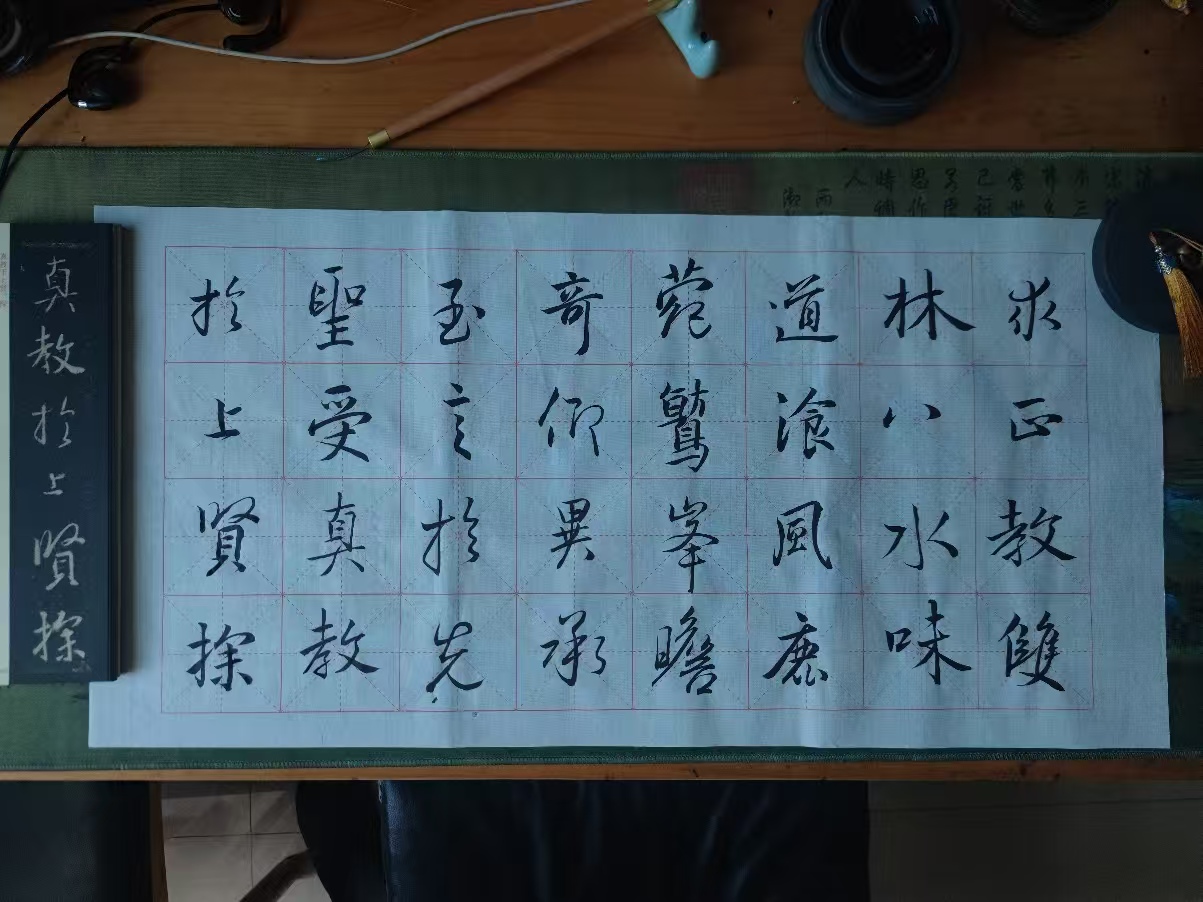 求正教雙
林八水味
道飡風鹿
菀鷲峯瞻
奇仰異承
至言於先
聖受真教
於上賢探
真教於上賢探